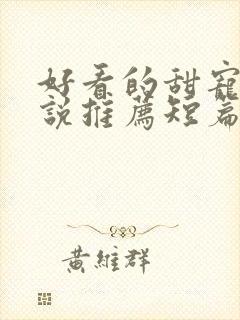 好看的甜寵
說推薦短篇
黃維群